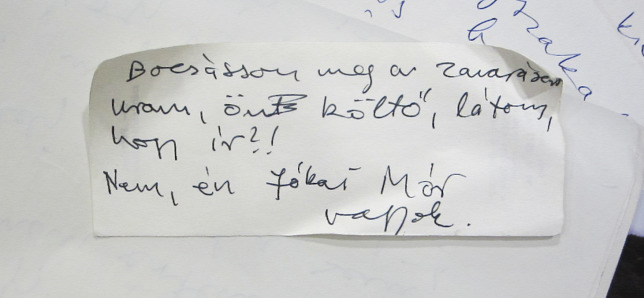 Bocsásson meg a zavarásért
uram, ön költő, látom,
hogy ír?!
Nem, én Jókai Mór
vagyok.